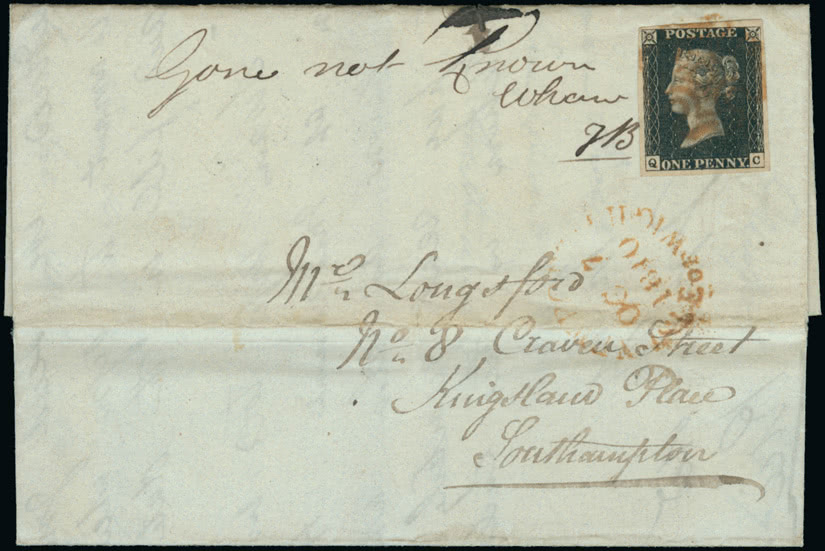 Gone not Known
Whaw
JB
POSTAGE
Q ONE PENNY C
Mrs Longsford
No 8 Craven Street
Kingsland Place
Southampton
ISLE OF WIGHT
1840